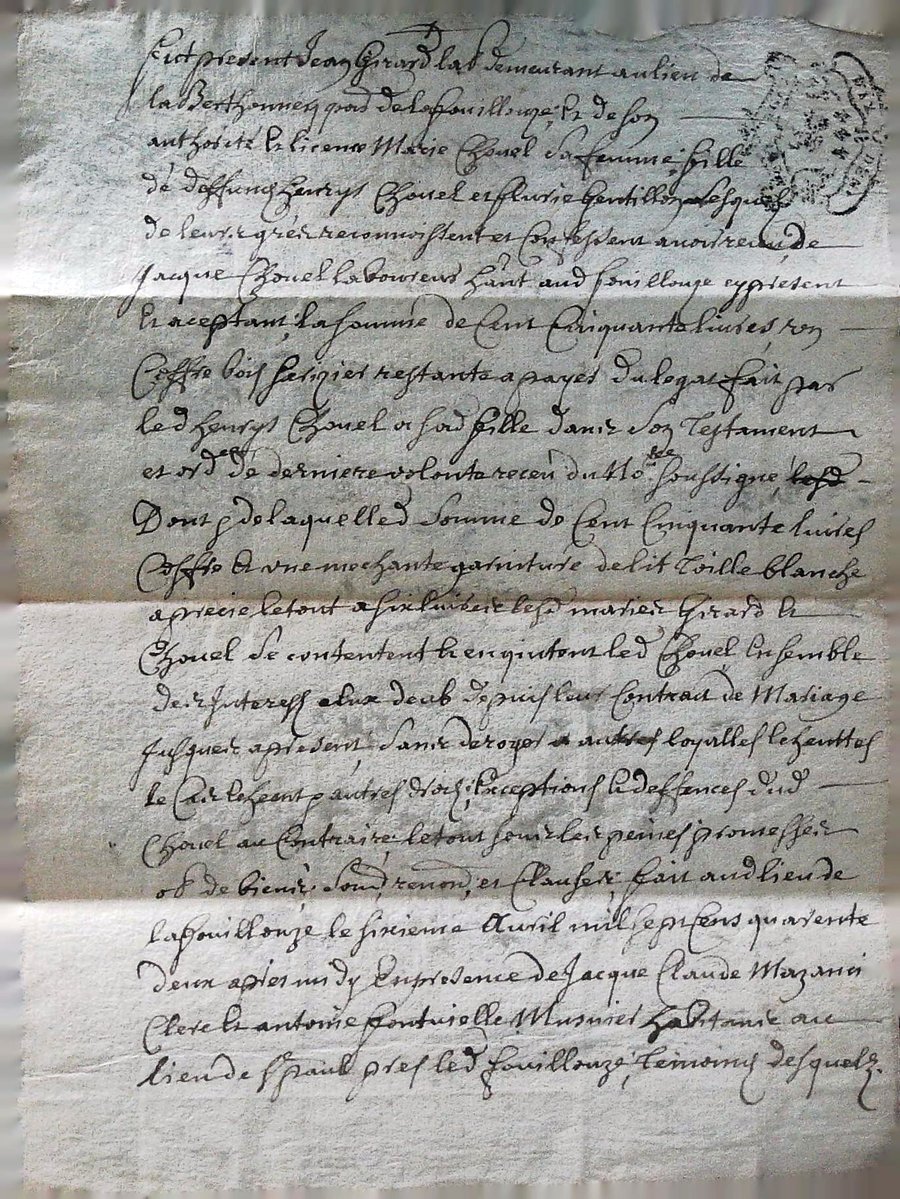 Fut present Jean Girard lab.r demeurant au lieu de
la Berthonnery par.se de la fouillouze, & de son
authorité & licence Marie Chouel sa femme, fille
de deffunct henrys Chouel et flurie Gentillon lesquels
de leurs gréz reconnoissent et confessent avoir receu de
Jacque Chouel laboureur hânt aud fouillouze cy present
& aceptant, la somme de Cent Cinquante livres, un
Coffre bois restante a payer du legat fait par
led henrys Chouel a sad fille dans son Testament
et ord.ce de derniere volonté receu du No.re soussigné
Dont & de laquelle d somme de Cent Cinquante livres
Coffre & une mechante garniture de lit Toille blanche
aprecié le tout a six livres lesd mariez Girard &
Chouel se contentent & en quittent led Chouel ensemble
des Interests eux deub depuis leur Contrait de Mariage
Jusques a present, sans deroger a autres loyalles
le Cas & autres droits, Exceptions & deffences dud
Chouel au Contraire, le tout sous les peines, promesses
ob de biens, soum, renon, et Clauses, fait aud lieu de
la fouillouze le sixieme Avril mil sept Cens quarente
deux apres midy En presence de Jacque Claude Mazancieu
Clerc & antoine fontvielle Musnier habitans au
lieu de St paul pres led fouillouze, temoins desquels